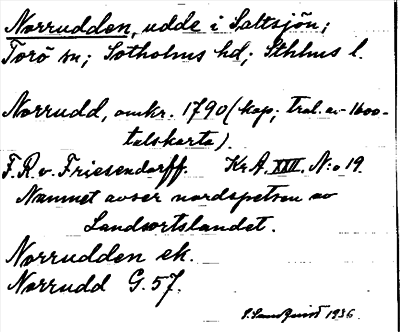 Norrudden, udde i Saltsjön;
Torö sn; Sotholms hd; Sthlms l.
Norrudd, omkr. 1790 (kop. trol. av 1600-
talskarta).
F. R. v. Friesendorff. Kr. A. XXII. N:o 19.
Namnet avser nordspetsen av
Landsortslandet.
Norrudden ek.
Norrudd G. 57.
1936